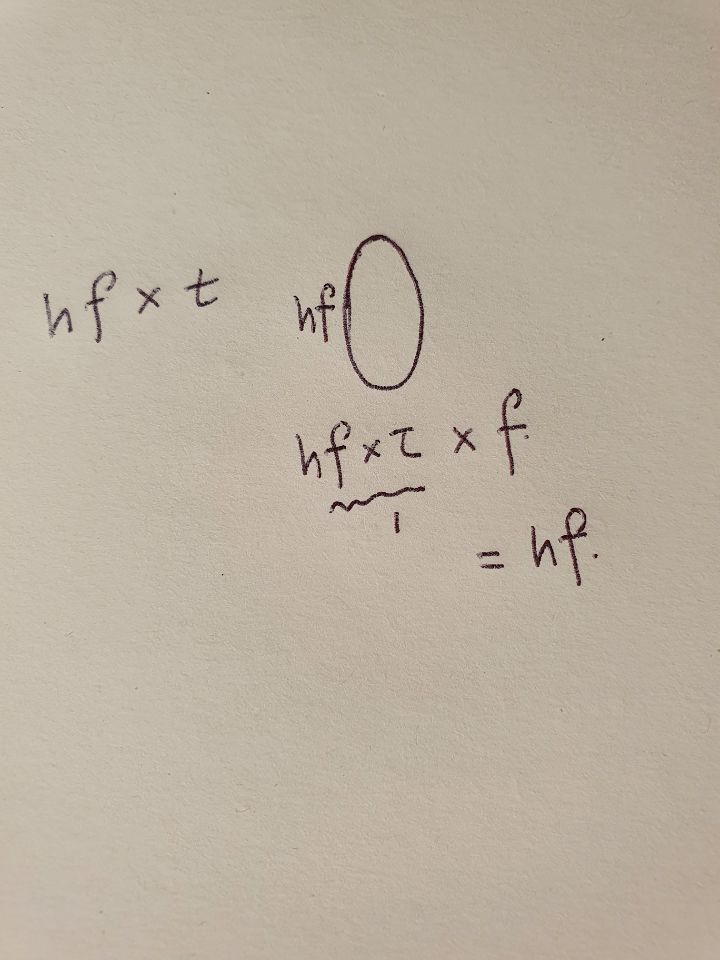 hf × t
hf
hf × τ × f.
1
= hf.